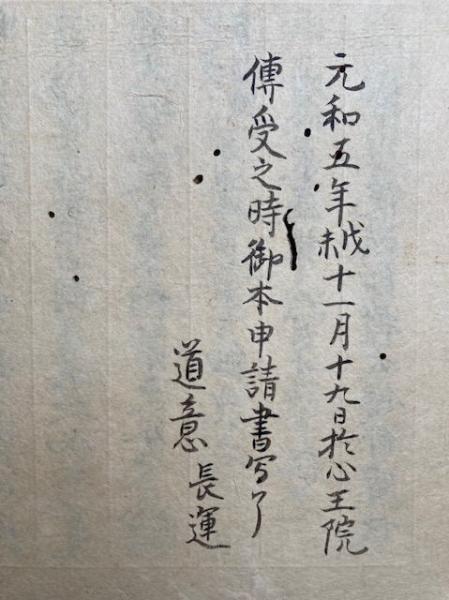 元和五年己未十一月十九日於心王院
傳受之時御本申請書写了
道意
長運